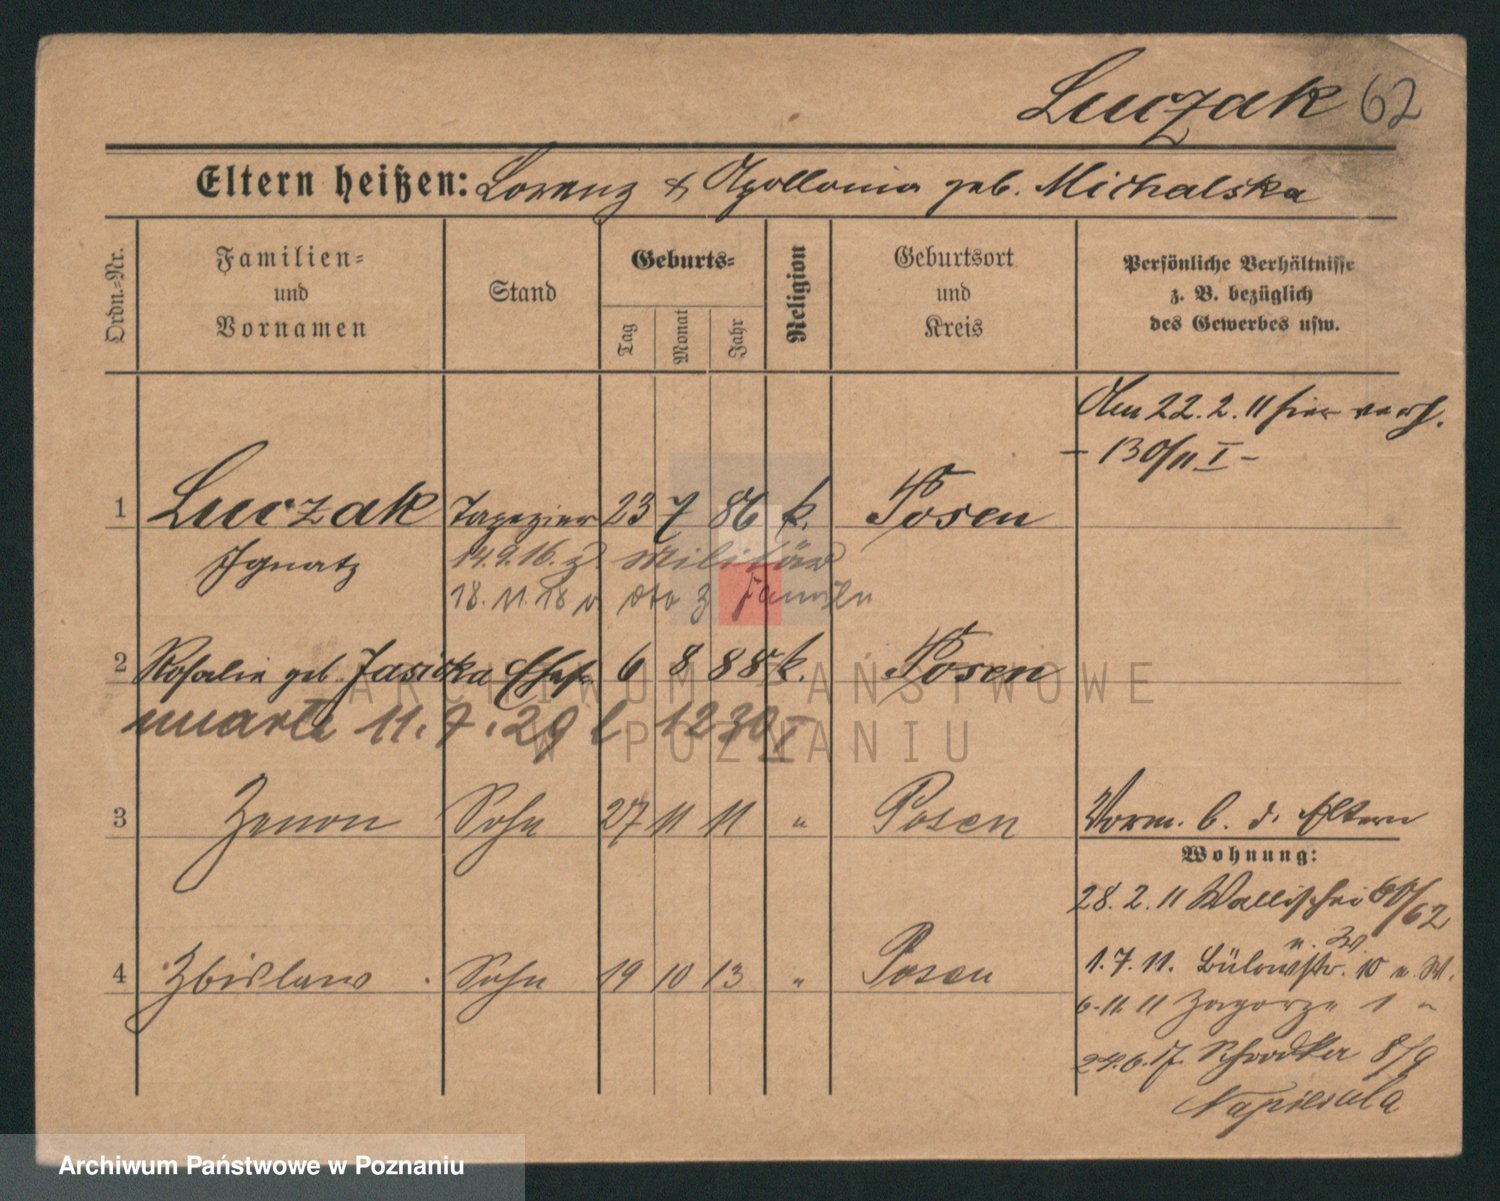 Luczak 62
Eltern heißen: Lorenz & Apollonia geb. Michalska
Ordn.-Nr.
Familien-
und
Vornamen
Stand
Geburts-
Tag
Monat
Jahr
Religion
Geburtsort
und
Kreis
Persönliche Verhältnisse
z. B. bezüglich
des Gewerbes usw.
Am 22. 2. 11 hier verh.
- 130/11 I -
1 Luczak Tapezier 23 7 86 k. Posen
Ignatz 14.9.16. z. Militär
18. 11. 18 v. z Familie
2 Rosalie geb. Jasicka Ehefr. 6 8 88 k. Posen
umarła 11. 7. 29 l 1230 I
3 Zenon Sohn 27 11 11 " Posen
Vorm. b. d. Eltern
Wohnung:
28. 2. 11 Wallischei 60/62
4 Zbislaw Sohn 19 10 13 " Posen
1. 7. 11. Bülowstr. 10 u. W.
6-11. 11 Zagorze 1 "
24. 6. 17. Schrodker 8/9
Napierala
ARCHIWUM PAŃSTWOWE
W POZNANIU
Archiwum Państwowe w Poznaniu